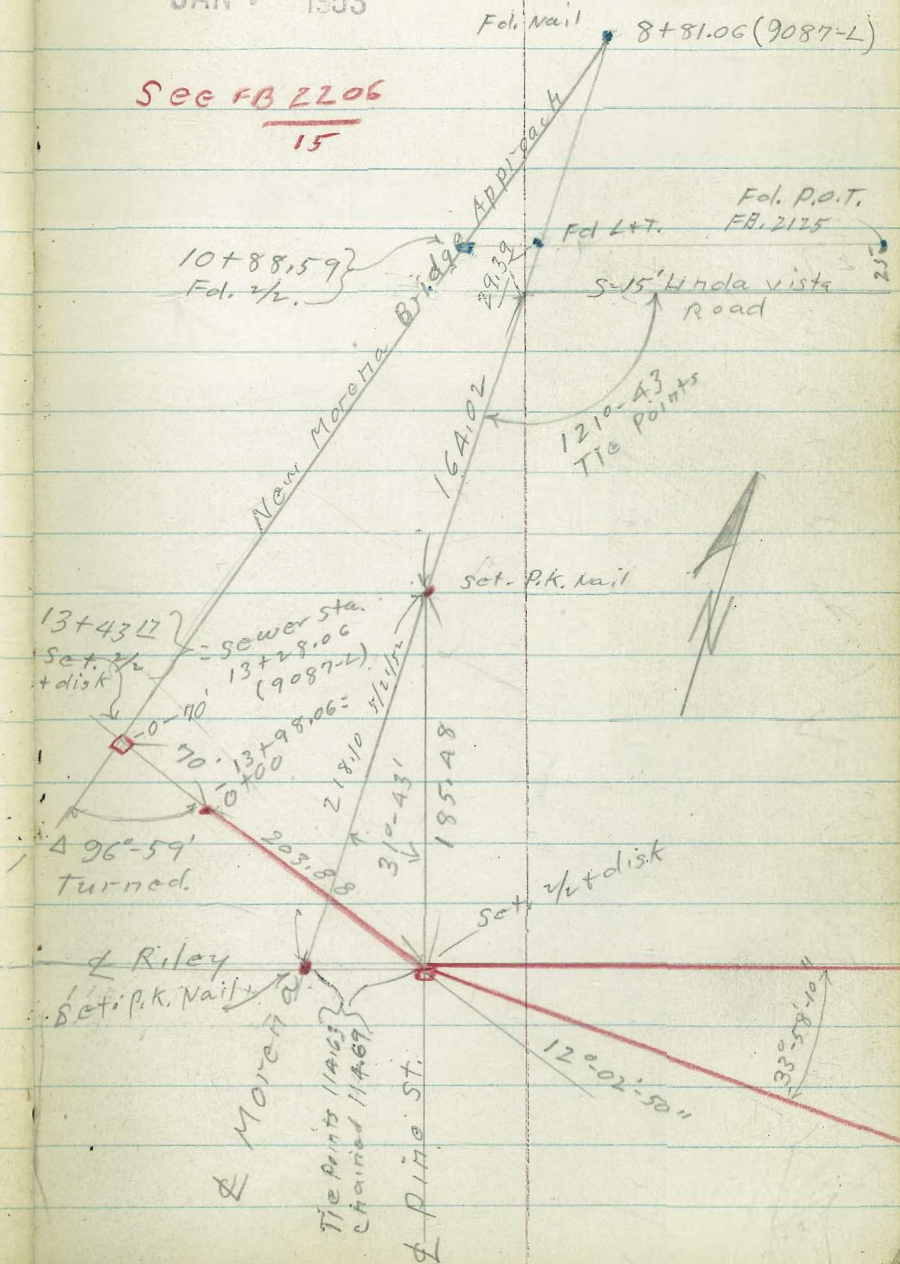 JAN 1953
Fd. Nail
8+81.06 (9087-L)
See FB 2206
15
New Morena Bridge Approach
Fd. P.O.T.
FB. 2125
25
Fd L+T.
10+88.59
Fd. 2/2.
39.39
S-15' Linda vista
Road
121°-43
Tie Points
164.02
Set. P.K. Nail
N
13+43.17
Set. 2/2
+ disk
= Sewer Sta.
13+28.06
(9087-L)
-0-70'
70.
13+98.06=
0+00
218.10 5/21/52
31°-43'
185.48
Δ 96°-59'
Turned.
203.88
Set. 2/2 + disk
℄ Riley
Set. P.K. Nail
℄ Morena
Tie Points 114.63
Chained 114.69
℄ Pine St.
12°-02'-50"
33°-58'-10"